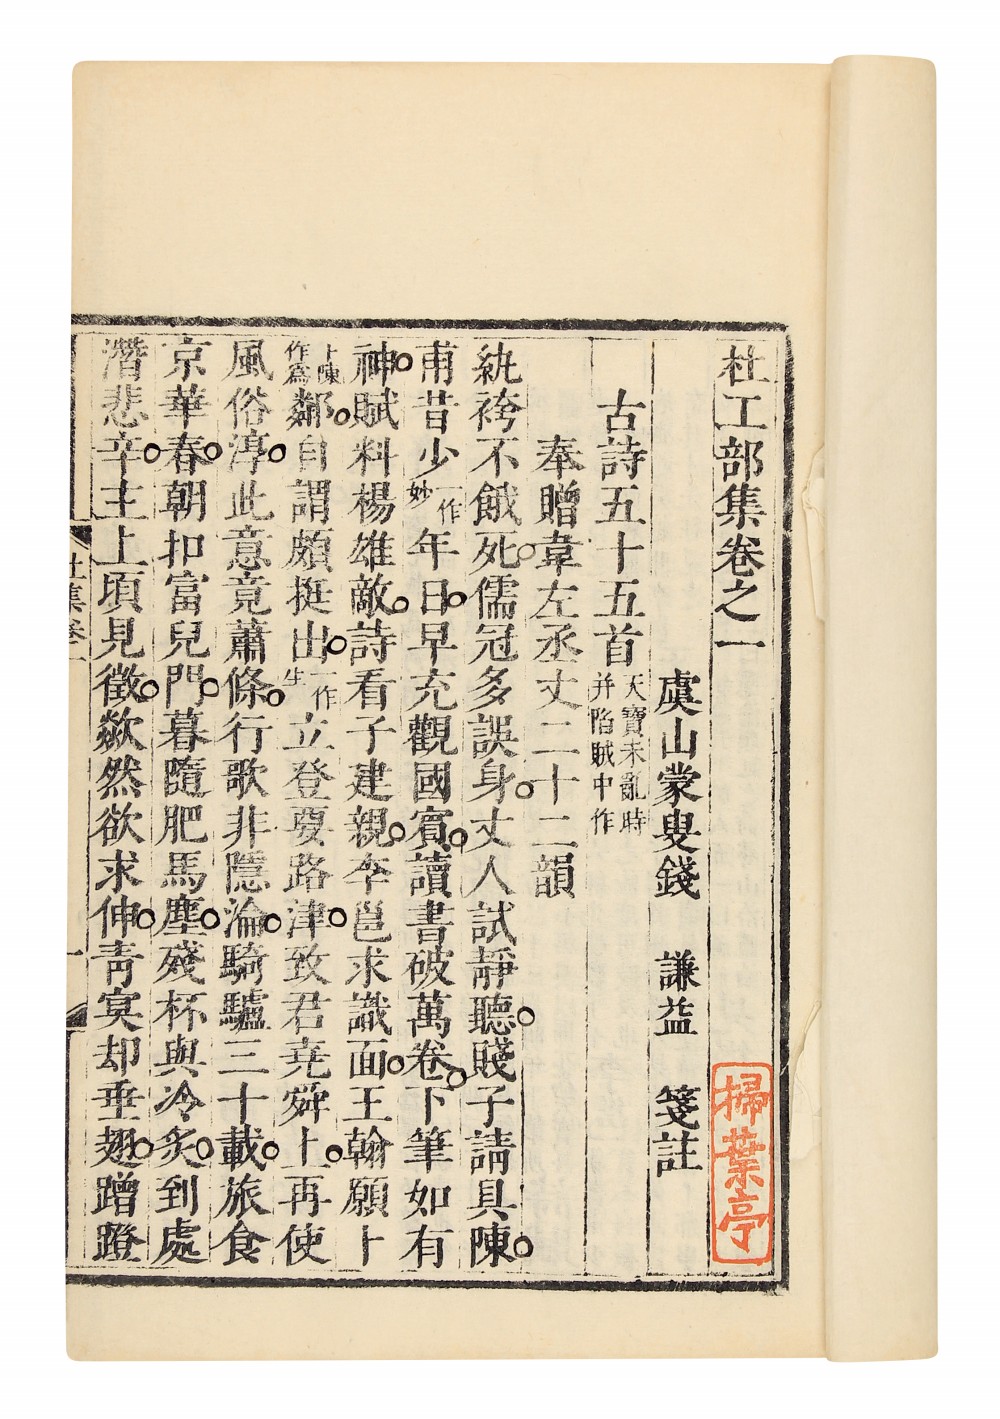 杜工部集卷之一
虞山蒙叟錢 謙益 箋註
古詩五十五首 天寶未亂時并陷賊中作
奉贈韋左丞丈二十二韻
紈袴不餓死儒冠多誤身丈人試靜聽賤子請具陳
甫昔少一作妙年日早充觀國賓讀書破萬卷下筆如有
神賦料楊雄敵詩看子建親李邕求識面王翰願卜
卜陳作爲鄰自謂頗挺出一作生立登要路津致君堯舜上再使
風俗淳此意竟蕭條行歌非隱淪騎驢三十載旅食
京華春朝扣富兒門暮隨肥馬塵殘杯與冷炙到處
潛悲辛主上頃見徵歘然欲求伸青冥却垂翅蹭蹬
杜集卷一
一
掃葉亭